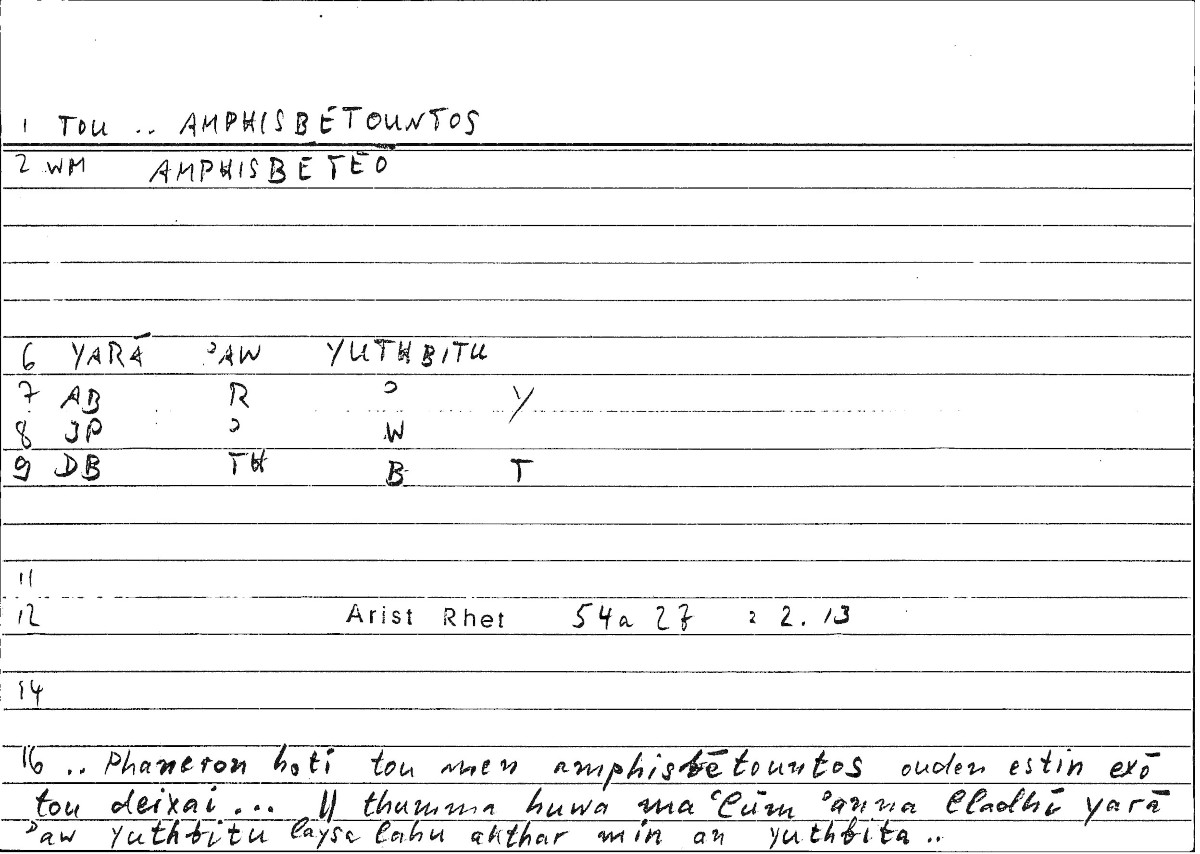 1 TOU .. AMPHISBĒTOUNTOS
2 WM AMPHISBĒTĒO
6 YARĀ ʾAW YUTHBITU
7 AB R ʾ Y
8 JP ʾ W
9 DB TH B T
11
12 Arist Rhet 54a 27 = 2.13
14
16 .. Phaneron hoti tou men amphisbētountos ouden estin exō
tou deixai ... // thumma huwa maʿlūm ʾanna lladhī yarā
ʾaw yuthbitu laysa lahu akthar min an yuthbita ..